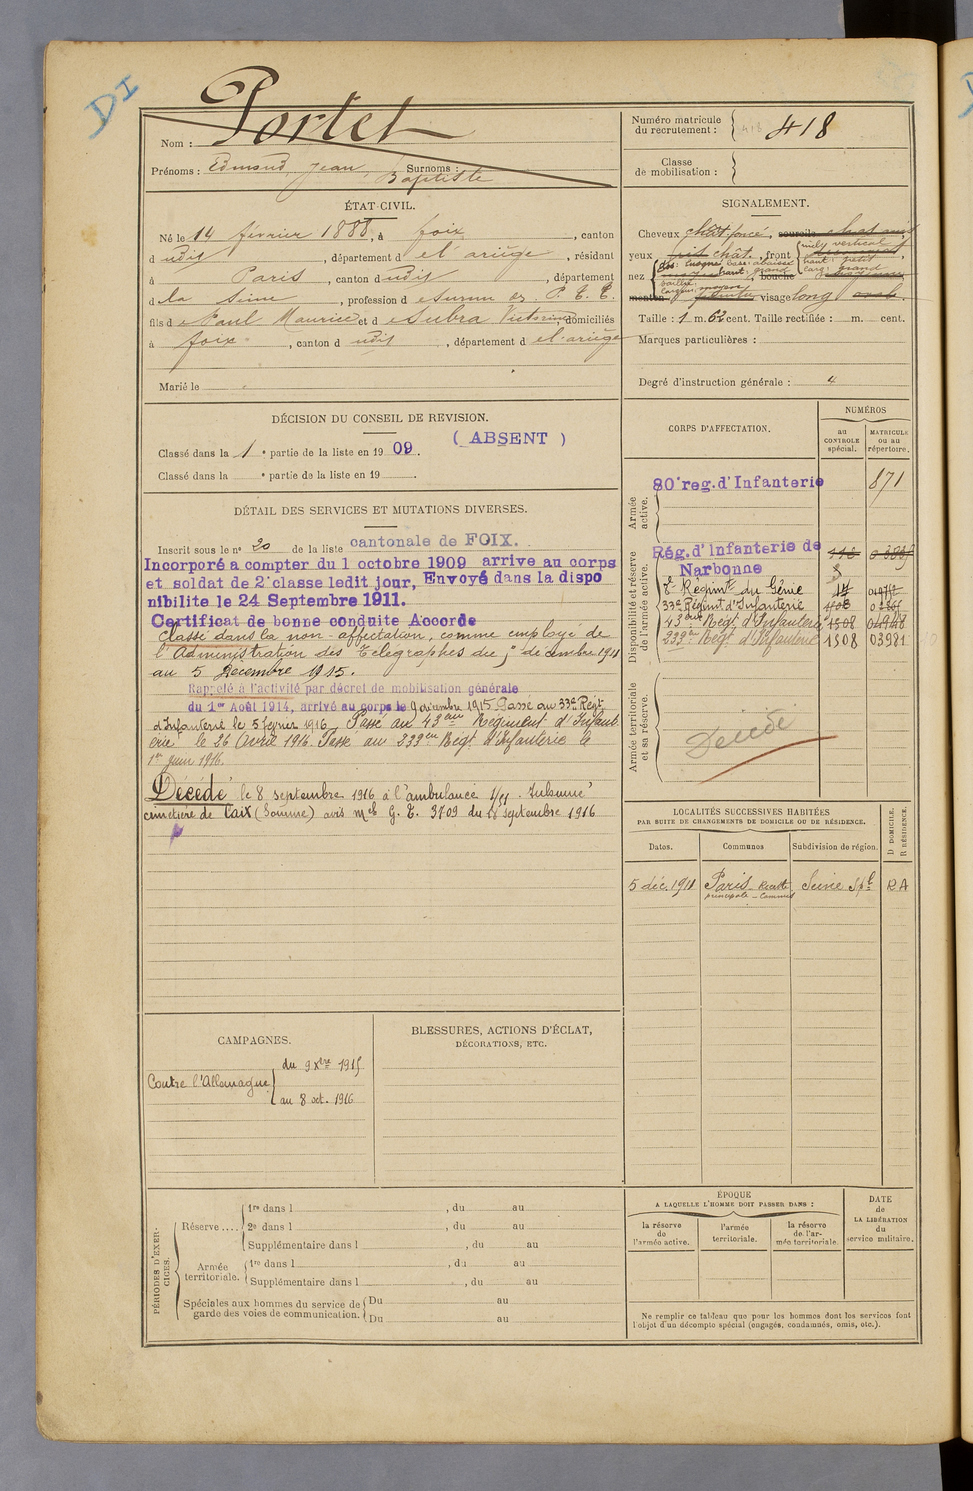 DI
Nom : Portet
Prénoms : Edmond, Jean, Baptiste Surnoms :
Numéro matricule du recrutement : 418
Classe de mobilisation :
ÉTAT-CIVIL.
Né le 14 février 1888, à foix, canton
d udit, département d e l'ariège, résidant
à Paris, canton d udit, département
d e la Seine, profession d e Surnum des P. T. T.
fils d e Paul Maurice et d e Subra Victorine, domiciliés
à foix, canton d udit, département d e l'ariège
Marié le
SIGNALEMENT.
Cheveux chât foncé, sourcils
yeux chât., front
incl: vertical
haut: petit
larg: grand
nez
dos: base: abaissée
haut: grand
saillie:
largeur: moyenne
bouche
menton visage long ovale.
Taille : 1 m. 62 cent. Taille rectifiée : m. cent.
Marques particulières :
Degré d'instruction générale : 4
DÉCISION DU CONSEIL DE REVISION.
Classé dans la 1e partie de la liste en 1909. ( ABSENT )
Classé dans la e partie de la liste en 19 .
DÉTAIL DES SERVICES ET MUTATIONS DIVERSES.
Inscrit sous le n° 20 de la liste cantonale de FOIX.
Incorporé a compter du 1 octobre 1909 arrive au corps
et soldat de 2e classe ledit jour, Envoyé dans la dispo
nibilite le 24 Septembre 1911.
Certificat de bonne conduite Accorde
Classé dans la non-affectation, comme employé de
l'Administration des Télégraphes du 5 décembre 1911
au 5 Décembre 1915.
Rappelé à l'activité par décret de mobilisation générale
du 1er Août 1914, arrivé au corps le 9 décembre 1915 Passé au 33e Régt
d'Infanterie le 5 février 1916 Passé au 43eme Régiment d'Infant
erie le 26 Avril 1916. Passé au 233em Régt d'Infanterie le
1er juin 1916.
Décédé le 8 septembre 1916 à l'ambulance 1/51. Inhumé
cimetière de Caix (Somme) avis mel G. T. 3709 du 18 septembre 1916
CORPS D'AFFECTATION.
NUMÉROS
au CONTROLE spécial.
MATRICULE ou au répertoire.
Armée active.
80e reg. d'Infanterie 871
Disponibilité et réserve de l'armée active.
Rég. d'Infanterie de
Narbonne
8e Régimt du Génie
33e Régimt d'Infanterie
43eme Régt d'Infanterie 1508 04948
233em Régt d'Infanterie 1508 03981
Armée territoriale et sa réserve.
Décédé
LOCALITÉS SUCCESSIVES HABITÉES
PAR SUITE DE CHANGEMENTS DE DOMICILE OU DE RÉSIDENCE.
Dates. Communes Subdivision de région. D DOMICILE. R RÉSIDENCE.
5 déc. 1911 Paris - Recette principale - Commis Seine Spl R A
CAMPAGNES.
Contre l'Allemagne
du 9 Xbre 1915
au 8 oct. 1916
BLESSURES, ACTIONS D'ÉCLAT,
DÉCORATIONS, ETC.
PÉRIODES D'EXERCICES.
Réserve ....
1re dans l , du au
2e dans l , du au
Supplémentaire dans l , du au
Armée territoriale.
1re dans l , du au
Supplémentaire dans l , du au
Spéciales aux hommes du service de garde des voies de communication.
Du au
Du au
ÉPOQUE
A LAQUELLE L'HOMME DOIT PASSER DANS :
la réserve de l'armée active.
l'armée territoriale.
la réserve de l'armée territoriale.
DATE de LA LIBÉRATION du service militaire.
Ne remplir ce tableau que pour les hommes dont les services font
l'objet d'un décompte spécial (engagés, condamnés, omis, etc.).